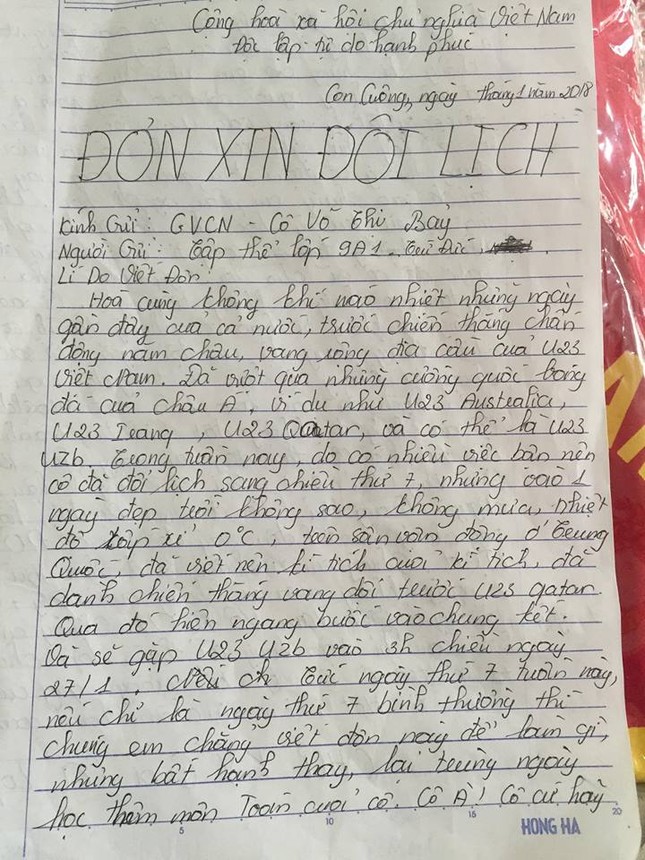 Cộng hoà xã hội chủ nghĩa Việt Nam
Độc lập tự do hạnh phúc
Con Cuông, ngày tháng 1 năm 2018
ĐƠN XIN ĐỔI LỊCH
Kính Gửi: GVCN - Cô Võ Thị Bảy
Người Gửi: Tập thể lớp 9A1. Trà Đức
Lí Do Viết Đơn
Hoà cùng không khí náo nhiệt những ngày
gần đây của cả nước, trước chiến thắng chấn
động năm châu, vang vọng địa cầu của U23
Việt Nam. Đã vượt qua những cường quốc bóng
đá của châu Á, ví dụ như U23 Australia,
U23 Iraq, U23 Qatar, và có thể là U23
Uzb trong tuần này, do có nhiều việc bận nên
cô đã đổi lịch sang chiều thứ 7, nhưng vào 1
ngày đẹp trời không sao, không mưa, nhiệt
độ xấp xỉ 0°C, trên sân vận động ở Trung
Quốc, đã viết nên kì tích của kì tích, đã
dành chiến thắng vang dội trước U23 qatar.
Qua đó hiên ngang bước vào chung kết.
Và sẽ gặp U23 Uzb vào 3h chiều ngày
27/1. Tức ngày thứ 7 tuần này,
nếu chỉ là ngày thứ 7 bình thường thì
chúng em chẳng viết đơn này để làm gì,
nhưng bất hạnh thay, lại trùng ngày
học thêm môn Toán của cô. Cô À! Cô cứ hãy
5 10 15 20
HONG HA